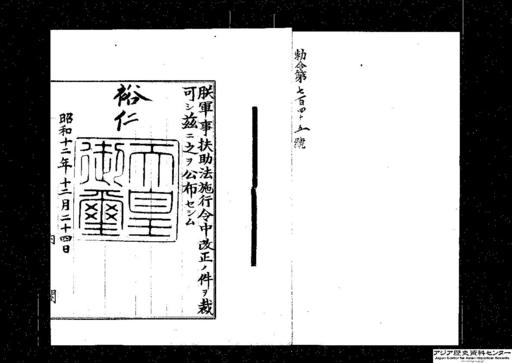 勅令第七百四十五號
朕軍事扶助法施行令中改正ノ件ヲ裁
可シ茲ニ之ヲ公布セシム
裕仁
天皇御璽
昭和十二年十二月二十四日
内閣
アジア歴史資料センター
Japan Center for Asian Historical Records